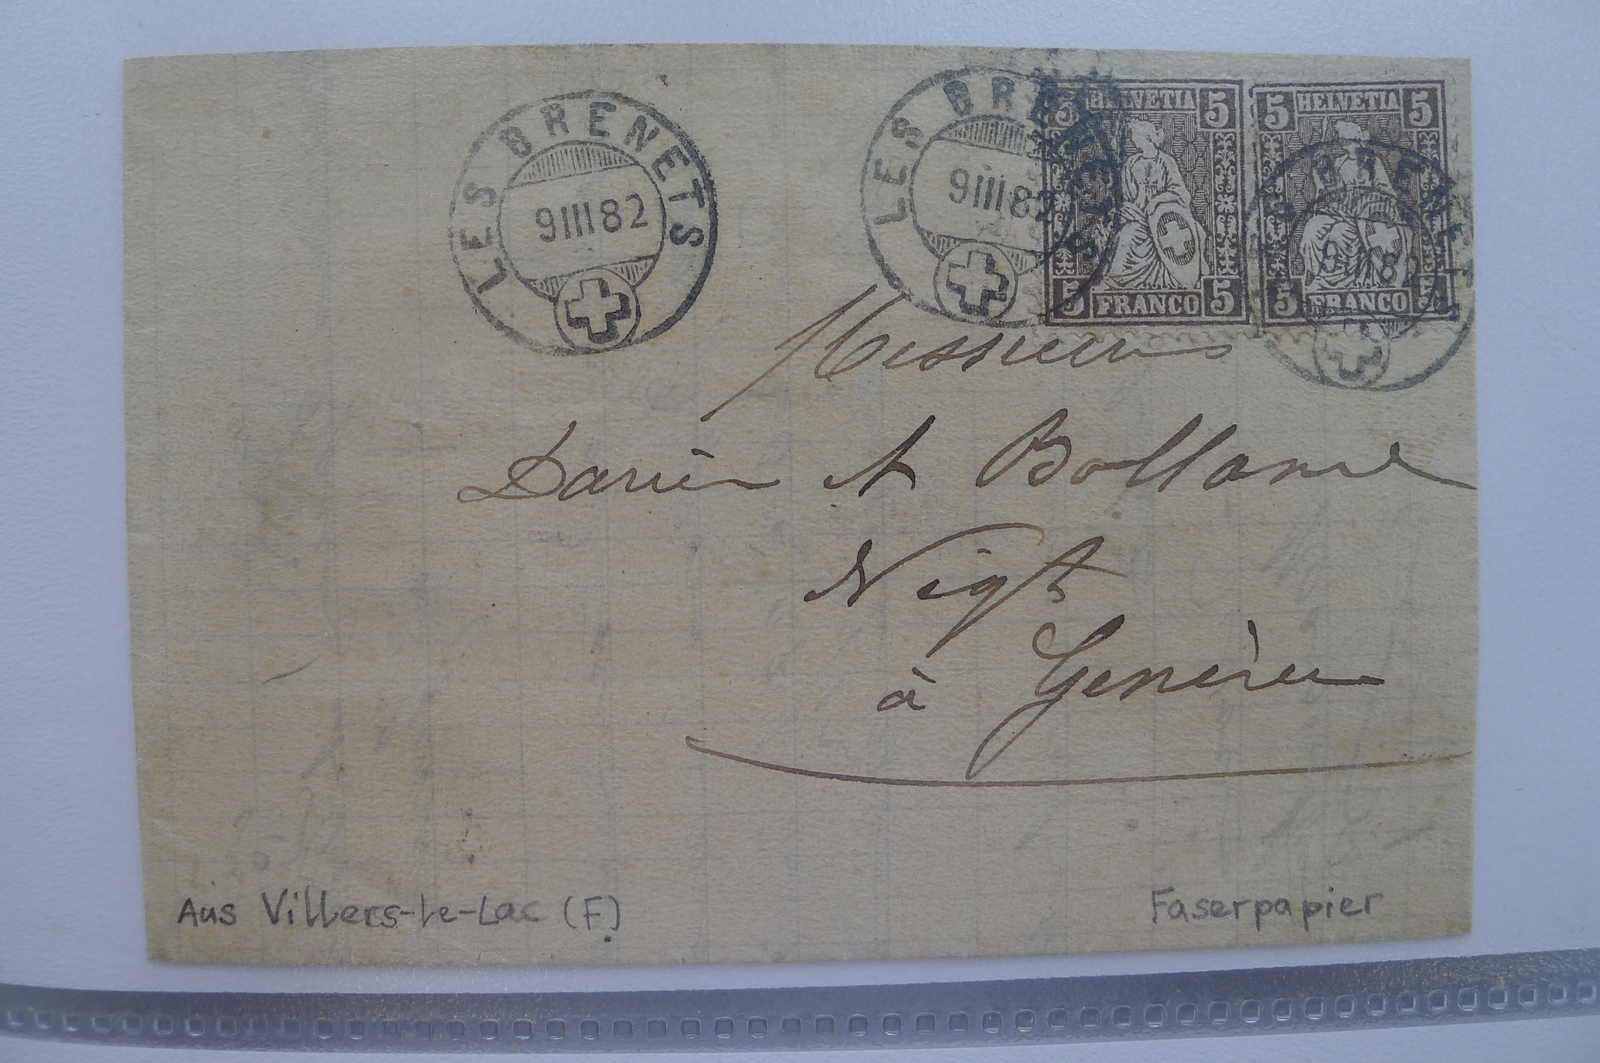 LES BRENETS
9 III 82
LES BRENETS
9 III 82
5 HELVETIA 5
5 FRANCO 5
5 HELVETIA 5
5 FRANCO 5
BRENET
Messieurs
Darier & Bolland
Nigt
à Genève
Aus Villers-le-Lac (F)
Faserpapier